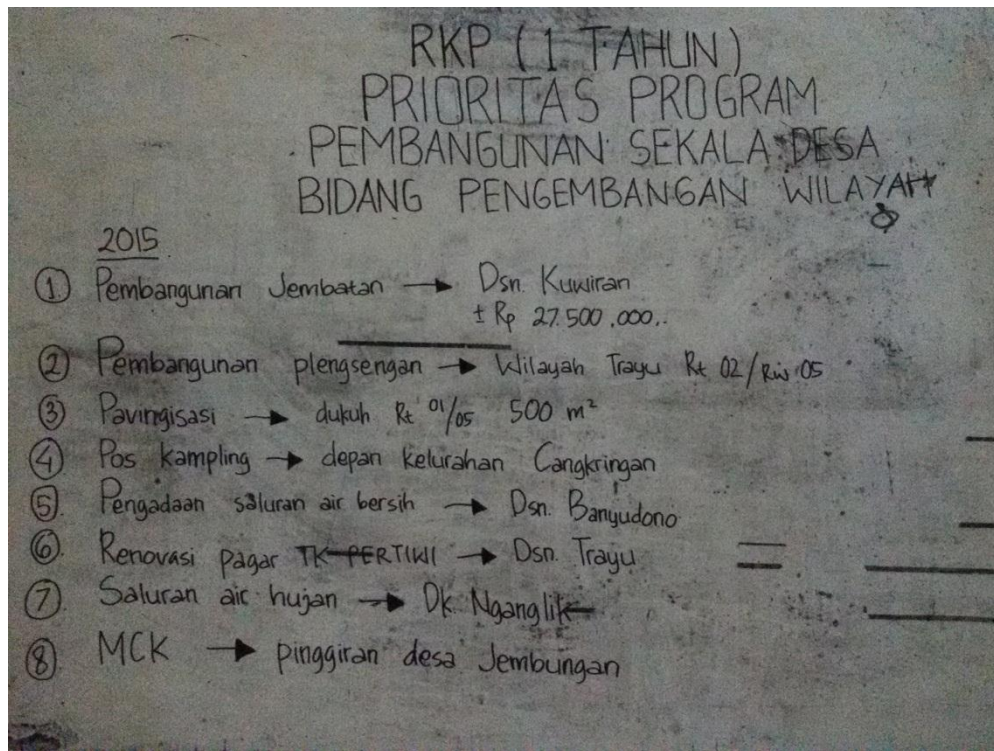 RKP (1 TAHUN)
PRIORITAS PROGRAM
PEMBANGUNAN SEKALA DESA
BIDANG PENGEMBANGAN WILAYAH
2015
① Pembangunan Jembatan → Dsn. Kuwiran
± Rp 27.500.000,.
② Pembangunan plengsengan → Wilayah Trayu Rt 02/Rw 05
③ Pavingisasi → dukuh Rt 01/05 500 m²
④ Pos kampling → depan kelurahan Cangkringan
⑤. Pengadaan saluran air bersih → Dsn. Banyudono
⑥. Renovasi pagar TK PERTIWI → Dsn. Trayu
⑦. Saluran air hujan → Dk. Nganglik
⑧. MCK → pinggiran desa Jembungan